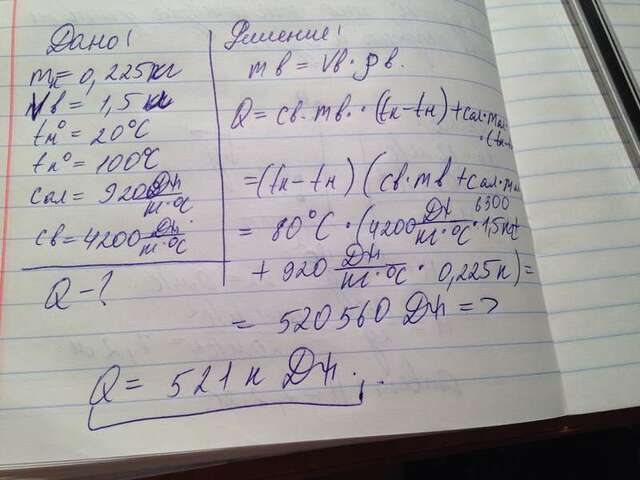 Дано!
mк = 0,225 кг
Vв = 1,5 л
tн° = 20°C
tк° = 100°C
Cал = 920 Дж/кг·°C
Cв = 4200 Дж/кг·°C
Q - ?
Решение!
mв = Vв · ρв.
Q = Cв · mв · (tк - tн) + Cал · mал
· (tк - tн
= (tк - tн) (Cв · mв + Cал · mал
6300
= 80°C · (4200 Дж/кг·°C · 1,5 кг
+ 920 Дж/кг·°C · 0,225 к) =
= 520560 Дж =>
Q = 521 к Дж.